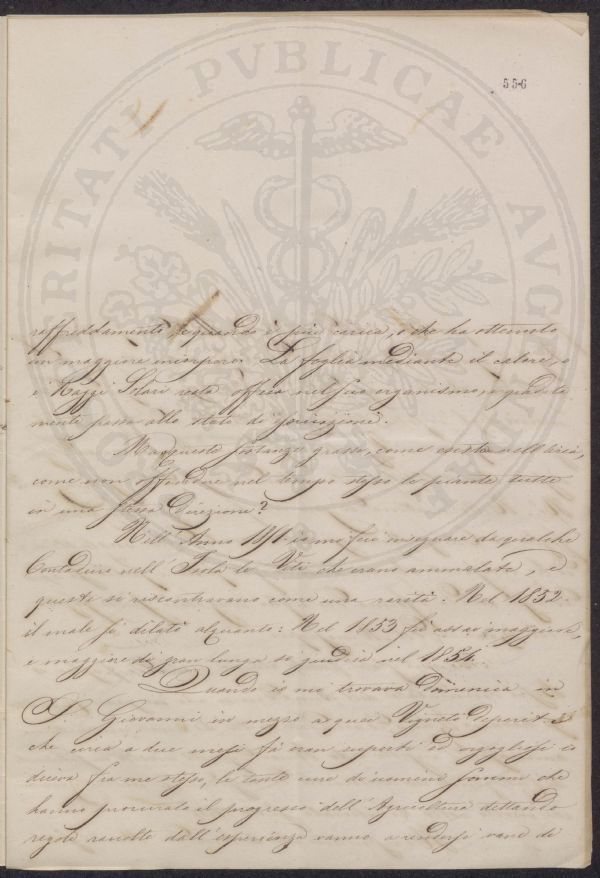 556
raffreddamento, e quando è più carica, o che ha ottenuto
un maggiore incorporo. La foglia mediante il calore, e
i Raggi Solari resta offesa nel suo organismo, e
mente passa allo stato di
Ma queste sostanze grasse, come esistono nell'aria,
come non offendere nel tempo stesso le piante tutte
in una stessa Direzione?
Nell'Anno 1851 io mi feci insegnare da qualche
Contadino nell'Isola le Viti che erano ammalate, e
queste si riscontravano come una rarità. Nel 1852
il male si dilatò alquanto: Nel 1853 fù assai maggiore,
e maggiore di gran lunga si giudica nel 1854.
Quando io mi trovava Domenica in
S. Giovanni in mezzo a quei Vigneti deperiti
che circa a due mesi fà eran superbi ed orgogliosi io
diceva fra me stesso, le tante cure di uomini sommi che
hanno procurato il progresso dell'Agricoltura dettando
regole raccolte dall'esperienza vanno a rendersi vane di
VERITATI PVBLICAE AVGENDAE